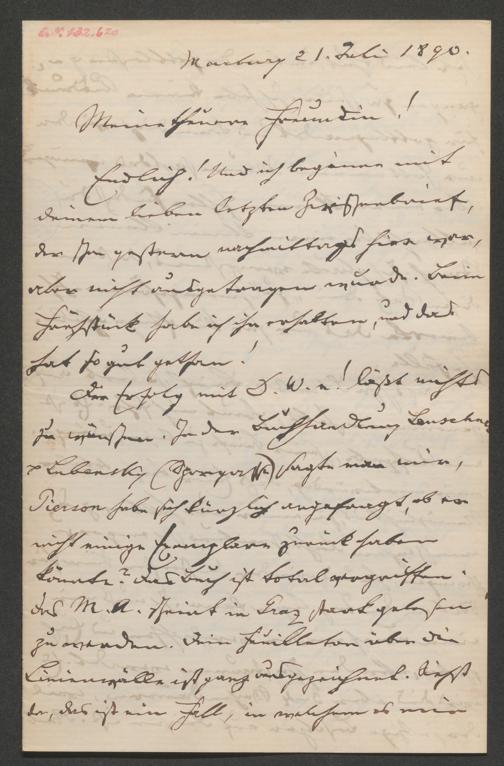 I.N. 132.620
Marburg 21. Juli 1890.
Meine theuere Freundin!
Endlich! Und ich beginne mit
deinem lieben letzten
der schon gestern nachmittags hier war,
aber nicht ausgetragen wurde. Beim
Frühstück habe ich ihn erhalten, und das
hat so gut gethan!
Der Erfolg mit D. W. n! läßt nichts
zu wünschen. In der Buchhandlung Leuschner
& Lubensky (Sporgasse) sagte man mir,
Pierson habe sich kürzlich angefragt, ob er
nicht einige Exemplare zurück haben
könnte? Das Buch ist total vergriffen.
Das M. A. scheint in Graz stark gelesen
zu werden. Dein Feuilleton über die
Linienwälle ist ganz ausgezeichnet. Siehst
du, das ist ein Fall, in welchem es mein